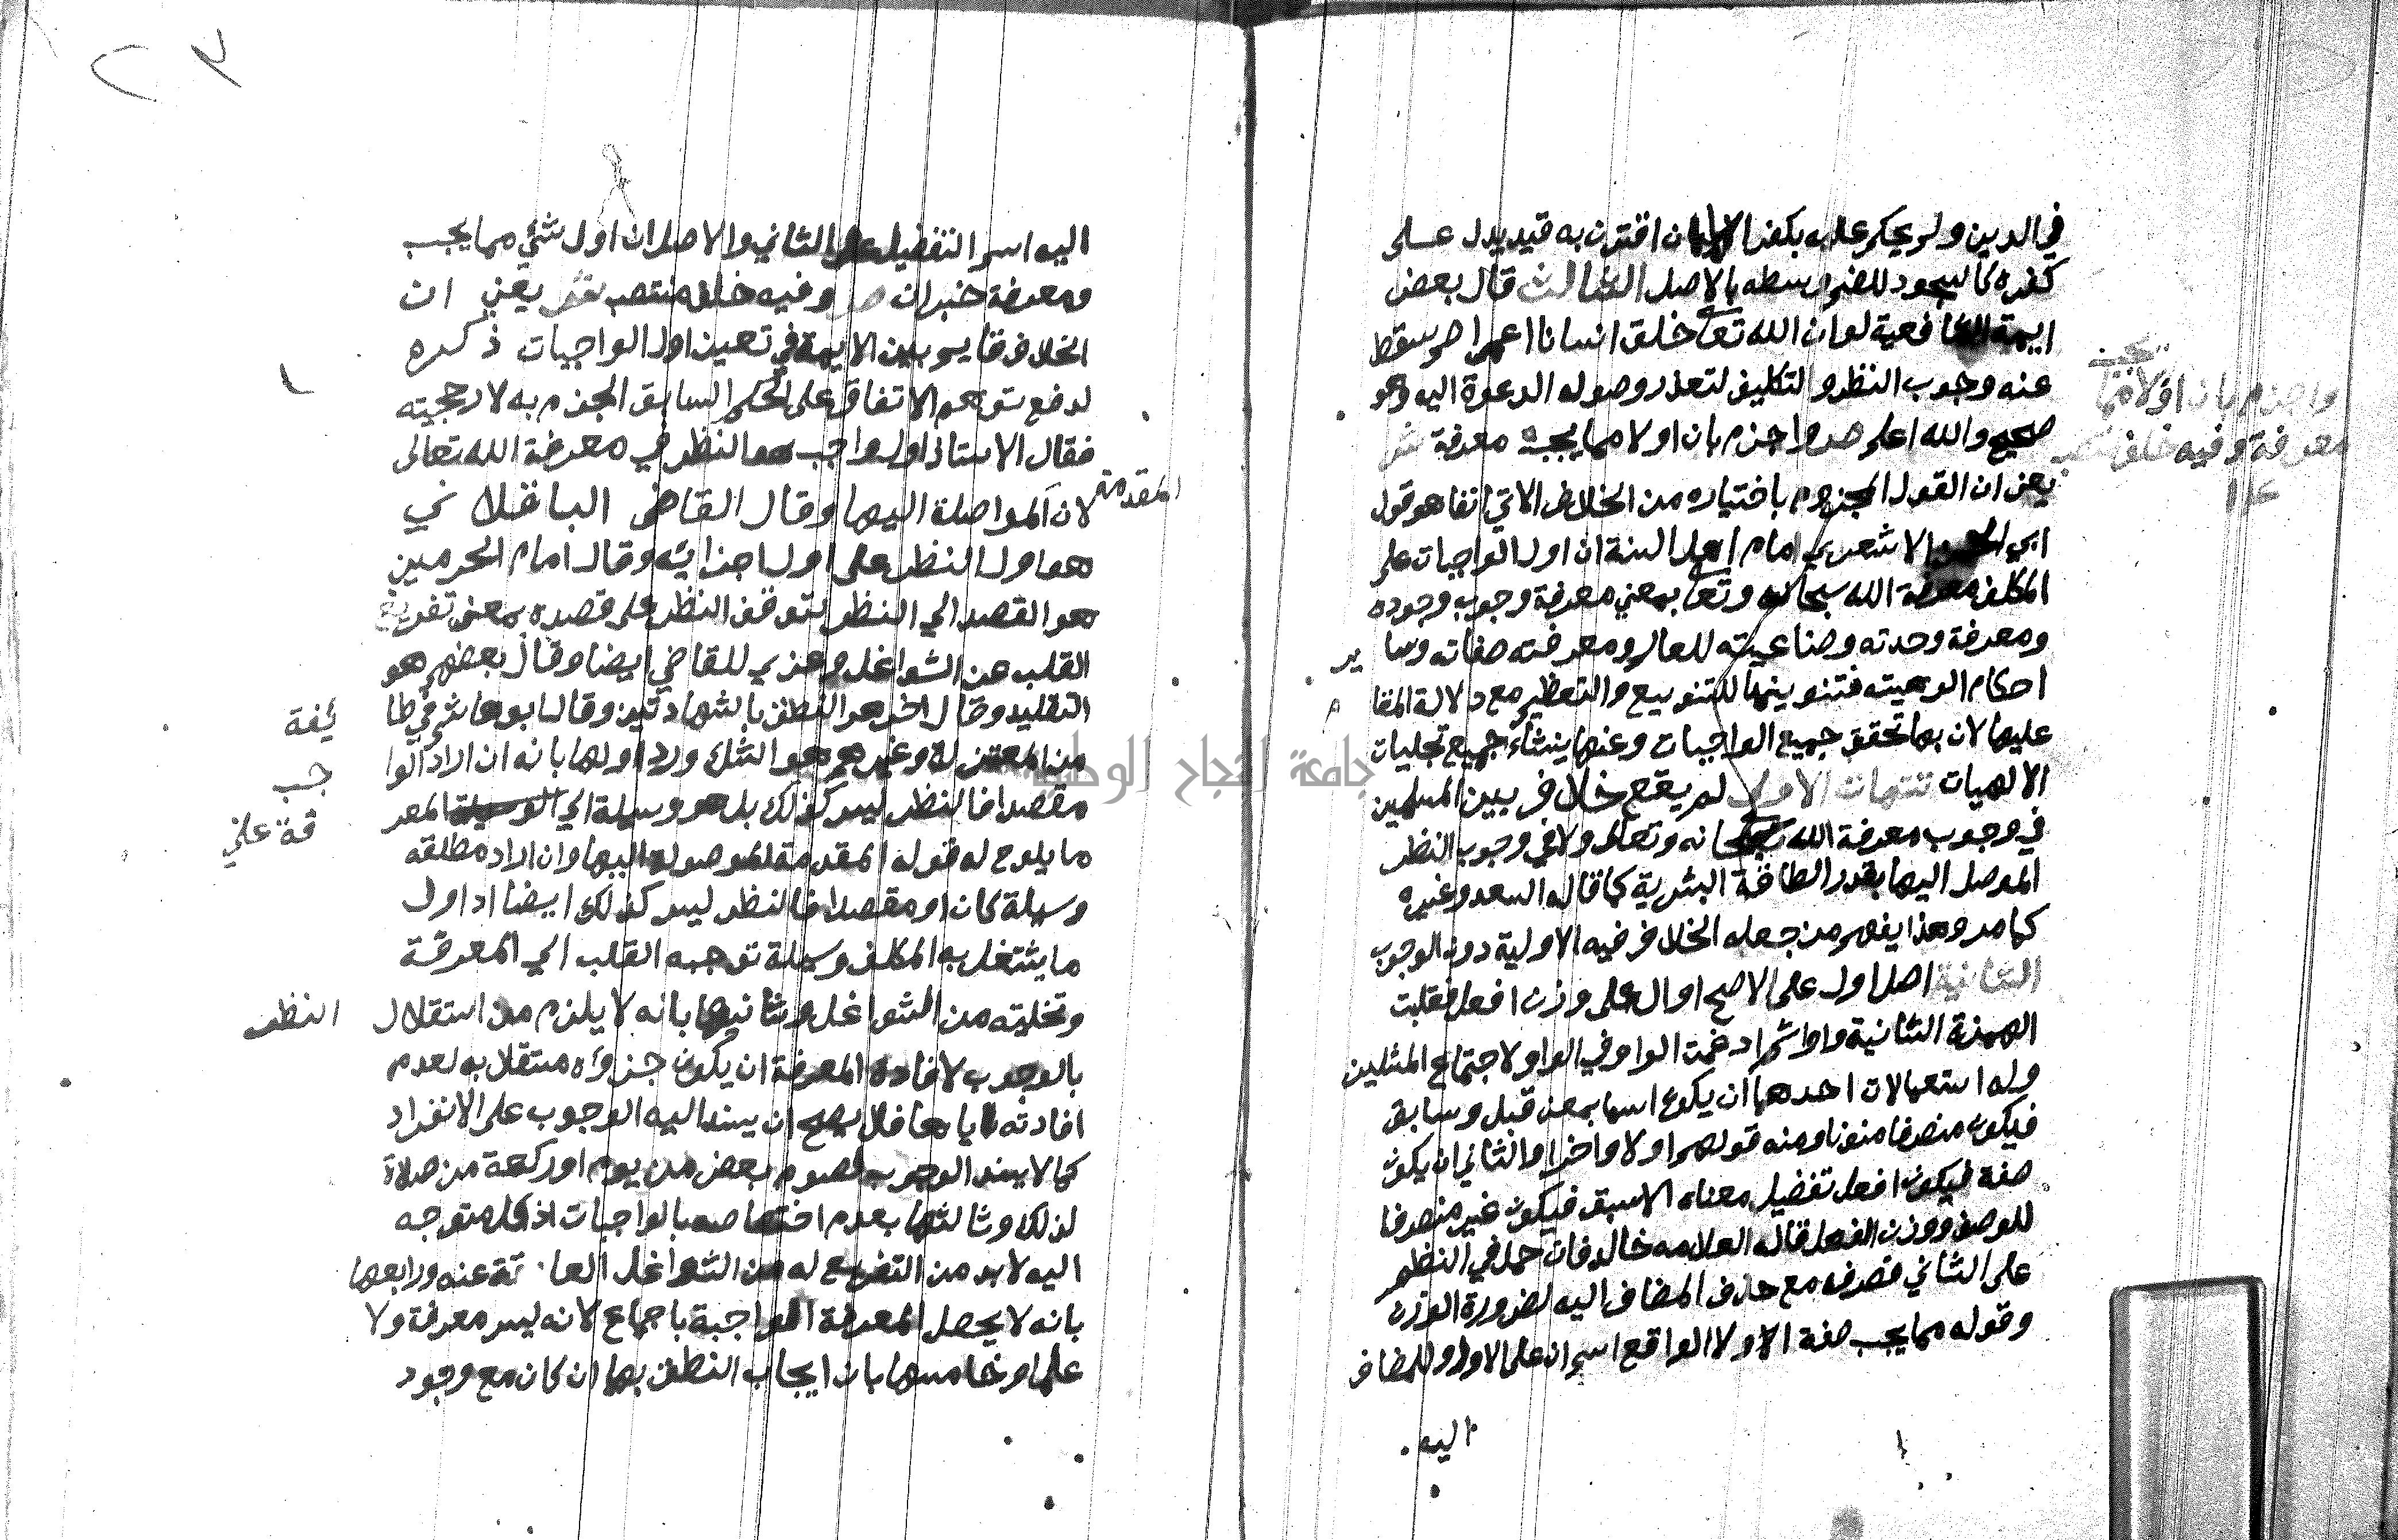 في الدين ولم يحكم عليه بكفر الا ان اقترن به قيد يدل على
كفره كالسجود للصنم وسطه بالاصل الثالث قال بعض
ايمة الشافعية لو ان الله تعا خلق انسانا اعمى اصم سقط
عنه وجوب النظر والتكليف لتعذر وصول الدعوة اليه وهو
صحيح والله اعلم ص واجزم بان اولا مما يجب معرفة ش
يعني ان القول المجزوم باختياره من الخلاف الاتي انفا هو قول
ابي الحسن الاشعري امام اهل السنة ان اول الواجبات على
المكلف معرفة الله سبحانه وتعا بمعني معرفة وجوب وجوده
ومعرفة وحدته وصناعيته للعالم ومعرفته صفاته وسا ير
احكام الوهيته فتنوينها للتنويع والتعظيم مع دلالة المقا م
عليها لان بها تحقق جميع الواجبات وعنها ينشاء جميع تجليات
الالهيات تتمات الاولى لم يقع خلاف بين المسلمين
في وجوب معرفة الله سبحانه وتعالى ولا في وجوب النظر
الموصل اليها بقدر الطاقة البشرية كما قاله السعد وغيره
كما مر وهذا يفهم من جعله الخلاف فيه الاولية دون الوجوب
الثانية اصل اول على الاصح اوال على وزن افعل فقلبت
الهمزة الثانية واوا ثم ادغمت الواو في الواو لاجتماع المثلين
وله استعمالات احدهما ان يكون اسما بمعنى قبل وسابق
فيكون منصرفا منونا ومنه قولهم اولا واخرا والثاني ان يكون
صفة فيكون افعل تفضيل معناه الاسبق فيكون غير منصرفا
للوصف ووزن الفعل قاله العلامه خالد فان حمل في النظم
على الثاني فصرفه مع حذف المضاف اليه لضرورة الوزن
وقوله مما يجب صفة الاولا الواقع اسم ان على الاول وللمضاف
اليه
يجب
واجزم بان اولا مما
معرفة وفيه خلف منتصب
اليه اسم التفضيل على الثاني والاصل ان اول شئ مما يجب
ومعرفة خبر ان ص وفيه خلف منتصب ش يعني ان
الخلاف قايم بين الايمة في تعيين اول الواجبات ذكره
لدفع توهم الاتفاق على الحكم السابق الجزم به لارجحيته
فقال الاستاذ اول واجب هو النظر في معرفة الله تعالى
لان المواصلة اليها وقال القاضى الباقلاني
المقدمة
هو اول النظر على اول اجزايه وقال امام الحرمين
هو القصد الي النظر لتوقف النظر على قصده بمعنى تفريغ
القلب عن الشواغل وعزي للقاضي ايضا وقال بعضهم هو
التقليد وقال اخر هو النطق بالشهادتين وقال ابو هاشم في طا ئفة
من المعتزلة وغيرهم هو الشك ورد اولها بانه ان اراد الوا جب
مقصدا فالنظر ليس كذلك بل هو وسيلة الي المعر فة علي
ما يلوح له قوله المقدمة الموصولة اليها وان اراد مطلقه
وسيلة كان او مقصدا فالنظر ليس كذلك ايضا اذ اول
ما يشتغل به المكلف وسيلة توجه القلب الي المعرفة
وتخليته من الشواغل وثانيها بانه لا يلزم من استقلال النظر
بالوجوب لافادة المعرفة ان يكون جزؤه مستقلا به لعدم
افادته اياها فلا يصح ان يسند اليه الوجوب على الانفراد
كما لا يسند الوجوب لصوم بعض من يوم او ركعة من صلاة
لذلك وثالثها بعدم اختصاصه بالواجبات اذ كل متوجه
اليه لا بد من التفريغ له من الشواغل العا ئقة عنه ورابعها
بانه لا يحصل المعرفة الواجبة باجماع لانه ليس معرفة ولا
علما وخامسها بان ايجاب النطق بهما ان كان مع وجود
جامعة النجاح الوطنية